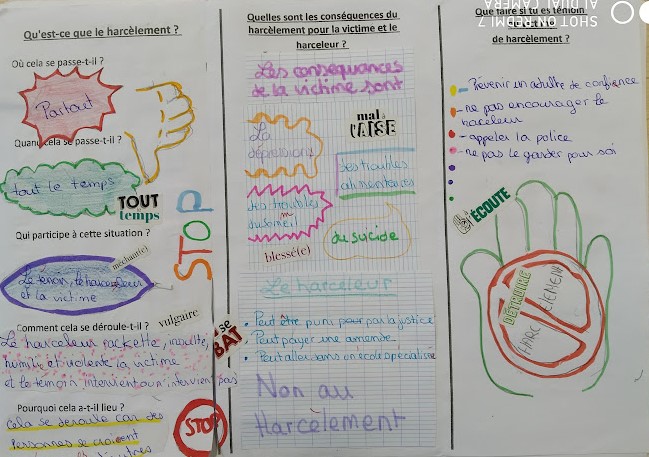 Qu'est-ce que le harcèlement ?
Où cela se passe-t-il ?
Partout
Quand cela se passe-t-il ?
tout le temps
TOUT
temps
STOP
Qui participe à cette situation ?
méchant(e)
Le témoin, le harceleur
et la victime
Comment cela se déroule-t-il ?
vulgaire
Le harceleur rackette, insulte,
humilie et violente la victime
et le temoin intervient ou n'intervien pas
Pourquoi cela a-t-il lieu ?
Cela se déroule car des
Personnes se croient
STOP
Quelles sont les conséquences du
harcèlement pour la victime et le
harceleur ?
Les conséquances
de la victime sont
La
dépression
mal à
l'AISE
des troubles
alimentaires
des troubles
du someil
m
blessé(e)
du suicide
Le harceleur
se
BAT
• Peut être puni pour par la justice
• Peut payer une amende
• Peut aller dans un ecole spécialisée
Non au
Harcèlement
Que faire si tu es témoin
de harcèlement ?
SHOT ON REDMI 7
AI DUAL CAMERA
- Prévenir un adulte de confience
- ne pas encourager le
harceleur
- appeler la police
- ne pas le garder pour soi
ÉCOUTE
DÉTRUIRE
HARCELEMENT